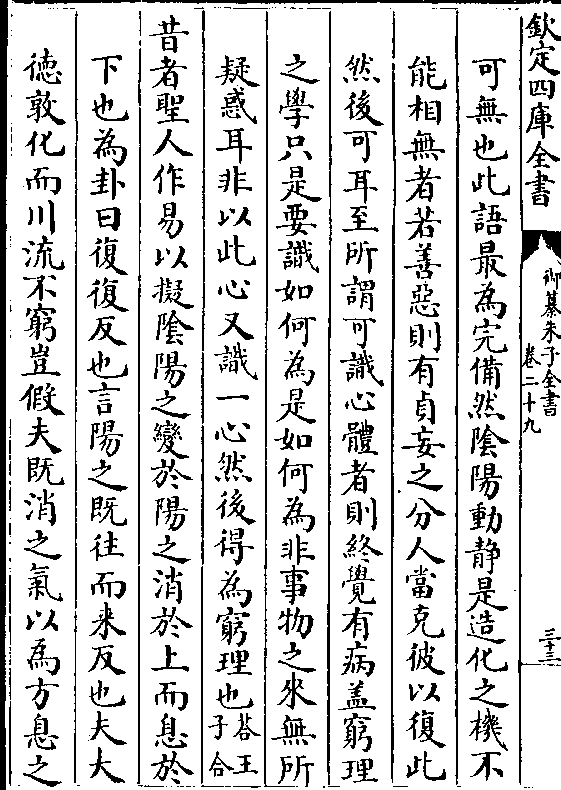 欽定四庫全書
御纂朱子全書
卷二十九
三十三
可無也此語最為完備然陰陽動静是造化之機不
能相無者若善惡則有貞妄之分人當克彼以復此
然後可耳至所謂可識心體者則終覺有病盖窮理
之學只是要識如何為是如何為非事物之來無所
疑惑耳非以此心又識一心然後得為窮理也答王子合
昔者聖人作易以擬陰陽之變於陽之消於上而息於
下也為卦曰復復反也言陽之既往而来反也夫大
德敦化而川流不窮豈假夫既消之氣以為方息之